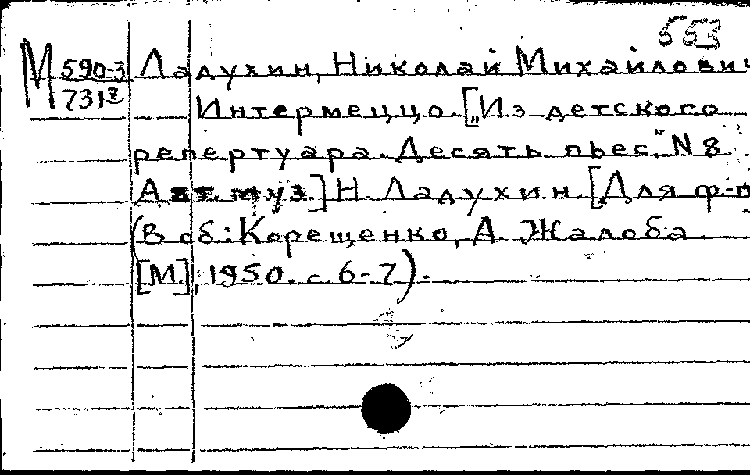 553
М 590-3 Ладухин, Николай Михайлович
731 Интермеццо. [„Из детского
репертуара. Десять пьес." N 8.
Авт. муз.] Н. Ладухин. [Для ф-п
(В сб: Корещенко, А. Жалоба.
[М.], 1950. с. 6-7).